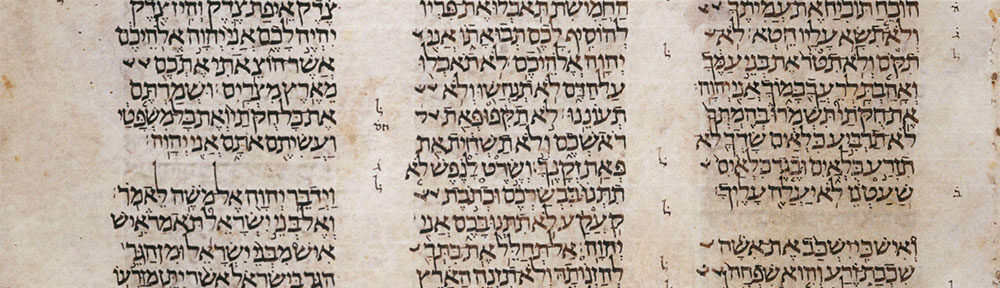 הוכח תוכיח את עמיתך
ולא תשא עליו חטא לא
תקם ולא תטר את בני עמך
ואהבת לרעך כמוך אני יהוה
את חקתי תשמרו בהמתך
לא תרביע כלאים שדך לא
תזרע כלאים ובגד כלאים
שעטנז לא יעלה עליך
ואיש כי ישכב את אשה
שכבת זרע והוא שפחה
החמישת תאכלו את פריו
להוסיף לכם תבואתו אני
יהוה אלהיכם לא תאכלו
על הדם לא תנחשו ולא
תעוננו לא תקפו פאת
ראשכם ולא תשחית את
פאת זקנך ושרט לנפש לא
תתנו בבשרכם וכתבת
קעקע לא תתנו בכם אני
יהוה אל תחלל את בתך
להזנותה ולא תזנה הארץ
צדק איפת צדק והין צדק
יהיה לכם אני יהוה אלהיכם
אשר הוצאתי אתכם
מארץ מצרים ושמרתם
את כל חקתי ואת כל משפטי
ועשיתם אתם אני יהוה
וידבר יהוה אל משה לאמר
ואל בני ישראל תאמר איש
איש מבני ישראל ומן הגר
הגר בישראל אשר יתן מזרעו